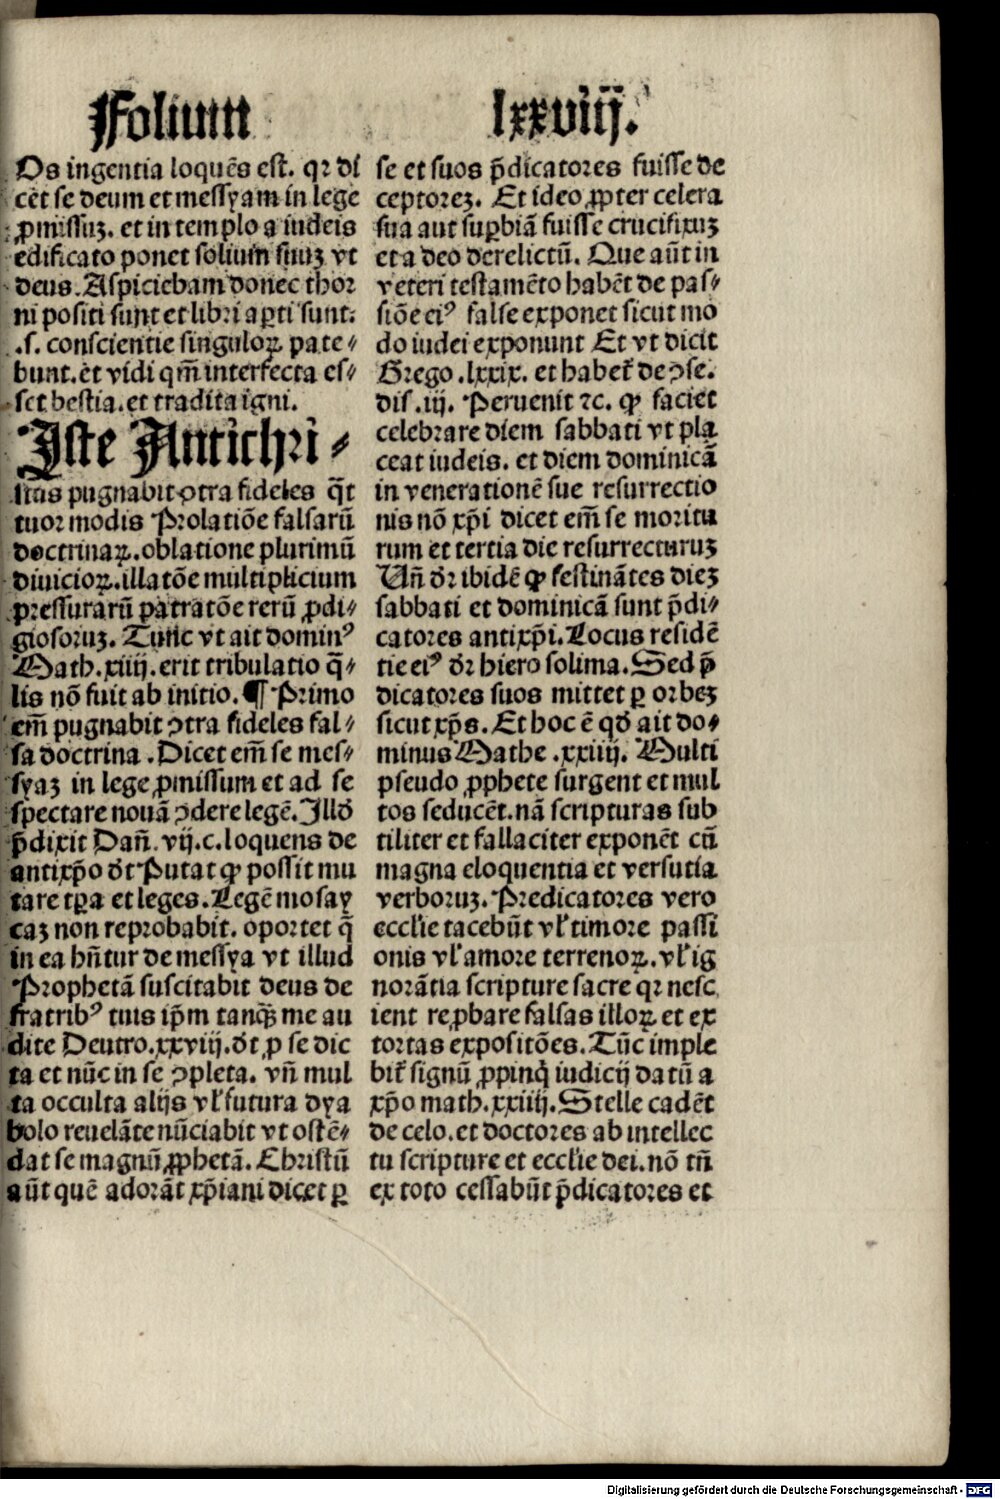 Folium lxxviij.
Os ingentia loquēs est. qꝛ di
cēt se deum et messyam in lege
ꝓmissuꝫ. et in templo a iudeis
edificato ponet solium suuꝫ vt
deus. Aspiciebam donec thor
ni positi sunt et libri aꝑti sunt.
.s. conscientie singuloꝝ pate⸗
bunt. et vidi qm̄ interfecta es⸗
set bestia. et tradita igni.
Iste Antichri⸗
stus pugnabit ꝯtra fideles q̄t
tuor modis Prolatiōe falsarū
doctrinaꝝ. oblatione plurimū
diuicioꝝ. illatōe multiplicium
pressurarū patratōe rerū ꝓdi⸗
giosoruꝫ. Tunc vt ait dominꝰ
Math. xiiij. erit tribulatio q̄⸗
lis nō fuit ab initio. ¶ Primo
em̄ pugnabit ꝯtra fideles fal⸗
sa doctrina. Dicet em̄ se mes⸗
syaꝫ in lege ꝓmissum et ad se
spectare nouā ꝯdere legē. Illđ
p̄dixit Dan̄. vij. c. loquens de
antixp̄o đt Putat ꝙ possit mu
tare tꝑa et leges. Legē mosay
caꝫ non reprobabit. oportet q̄
in ea hn̄tur de messya vt illud
Prophetā suscitabit deus de
fratribꝰ tuis ip̄m tanqꝫ me au
dite Deutro. xxviij. đt ꝓ se dic
ta et nūc in se ꝯpleta. vn̄ mul
ta occulta alijs vl̓ futura dya
bolo reuelāte nūciabit vt ostē⸗
dat se magnū ꝓphetā. Christū
aūt quē adorāt xp̄iani dicet ꝑ
se et suos p̄dicatores fuisse de
ceptoreꝫ. Et ideo ꝓpter celera
sua aut suꝑbiā fuisse crucifixuꝫ
et a deo derelictū. Que aūt in
veteri testamēto habēt de pas⸗
siōe eiꝰ false exponet sicut mo
do iudei exponunt Et vt dicit
Grego. lxxix. et habet̓ de ꝯse.
dis. iij. Peruenit ⁊c. ꝙ faciet
celebrare diem sabbati vt pla
ceat iudeis. et diem dominicā
in venerationē sue resurrectio
nis nō xp̄i dicet em̄ se moritu
rum et tertia die resurrecturuꝫ
Un̄ đr ibidē ꝙ festināntes dieꝫ
sabbati et dominicā sunt p̄di⸗
catores antixp̄i. Locus residē
tie eiꝰ đr hiero solima. Sed p̄
dicatores suos mittet ꝑ orbeꝫ
sicut xp̄s. Et hoc ē qđ ait do⸗
minus Mathe. xxiiij. Multi
pseudo ꝓphete surgent et mul
tos seducēt. nā scripturas sub
tiliter et fallaciter exponēt cū
magna eloquentia et versutia
verboruꝫ. Predicatores vero
eccl̓ie tacebūt vl̓ timore passi
onis vl̓ amore terrenoꝝ. vl̓ ig
norātia scripture sacre qꝛ nesc
ient reꝓbare falsas illoꝝ et ex
tortas expositōes. Tūc imple
bit̓ signū ꝓpinqͥ iudicij datū a
xp̄o math. xxiiij. Stelle cadēt
de celo. et doctores ab intellec
tu scripture et eccl̓ie dei. nō tn̄
ex toto cessabūt p̄dicatores et
Digitalisierung gefördert durch die Deutsche Forschungsgemeinschaft - DFG